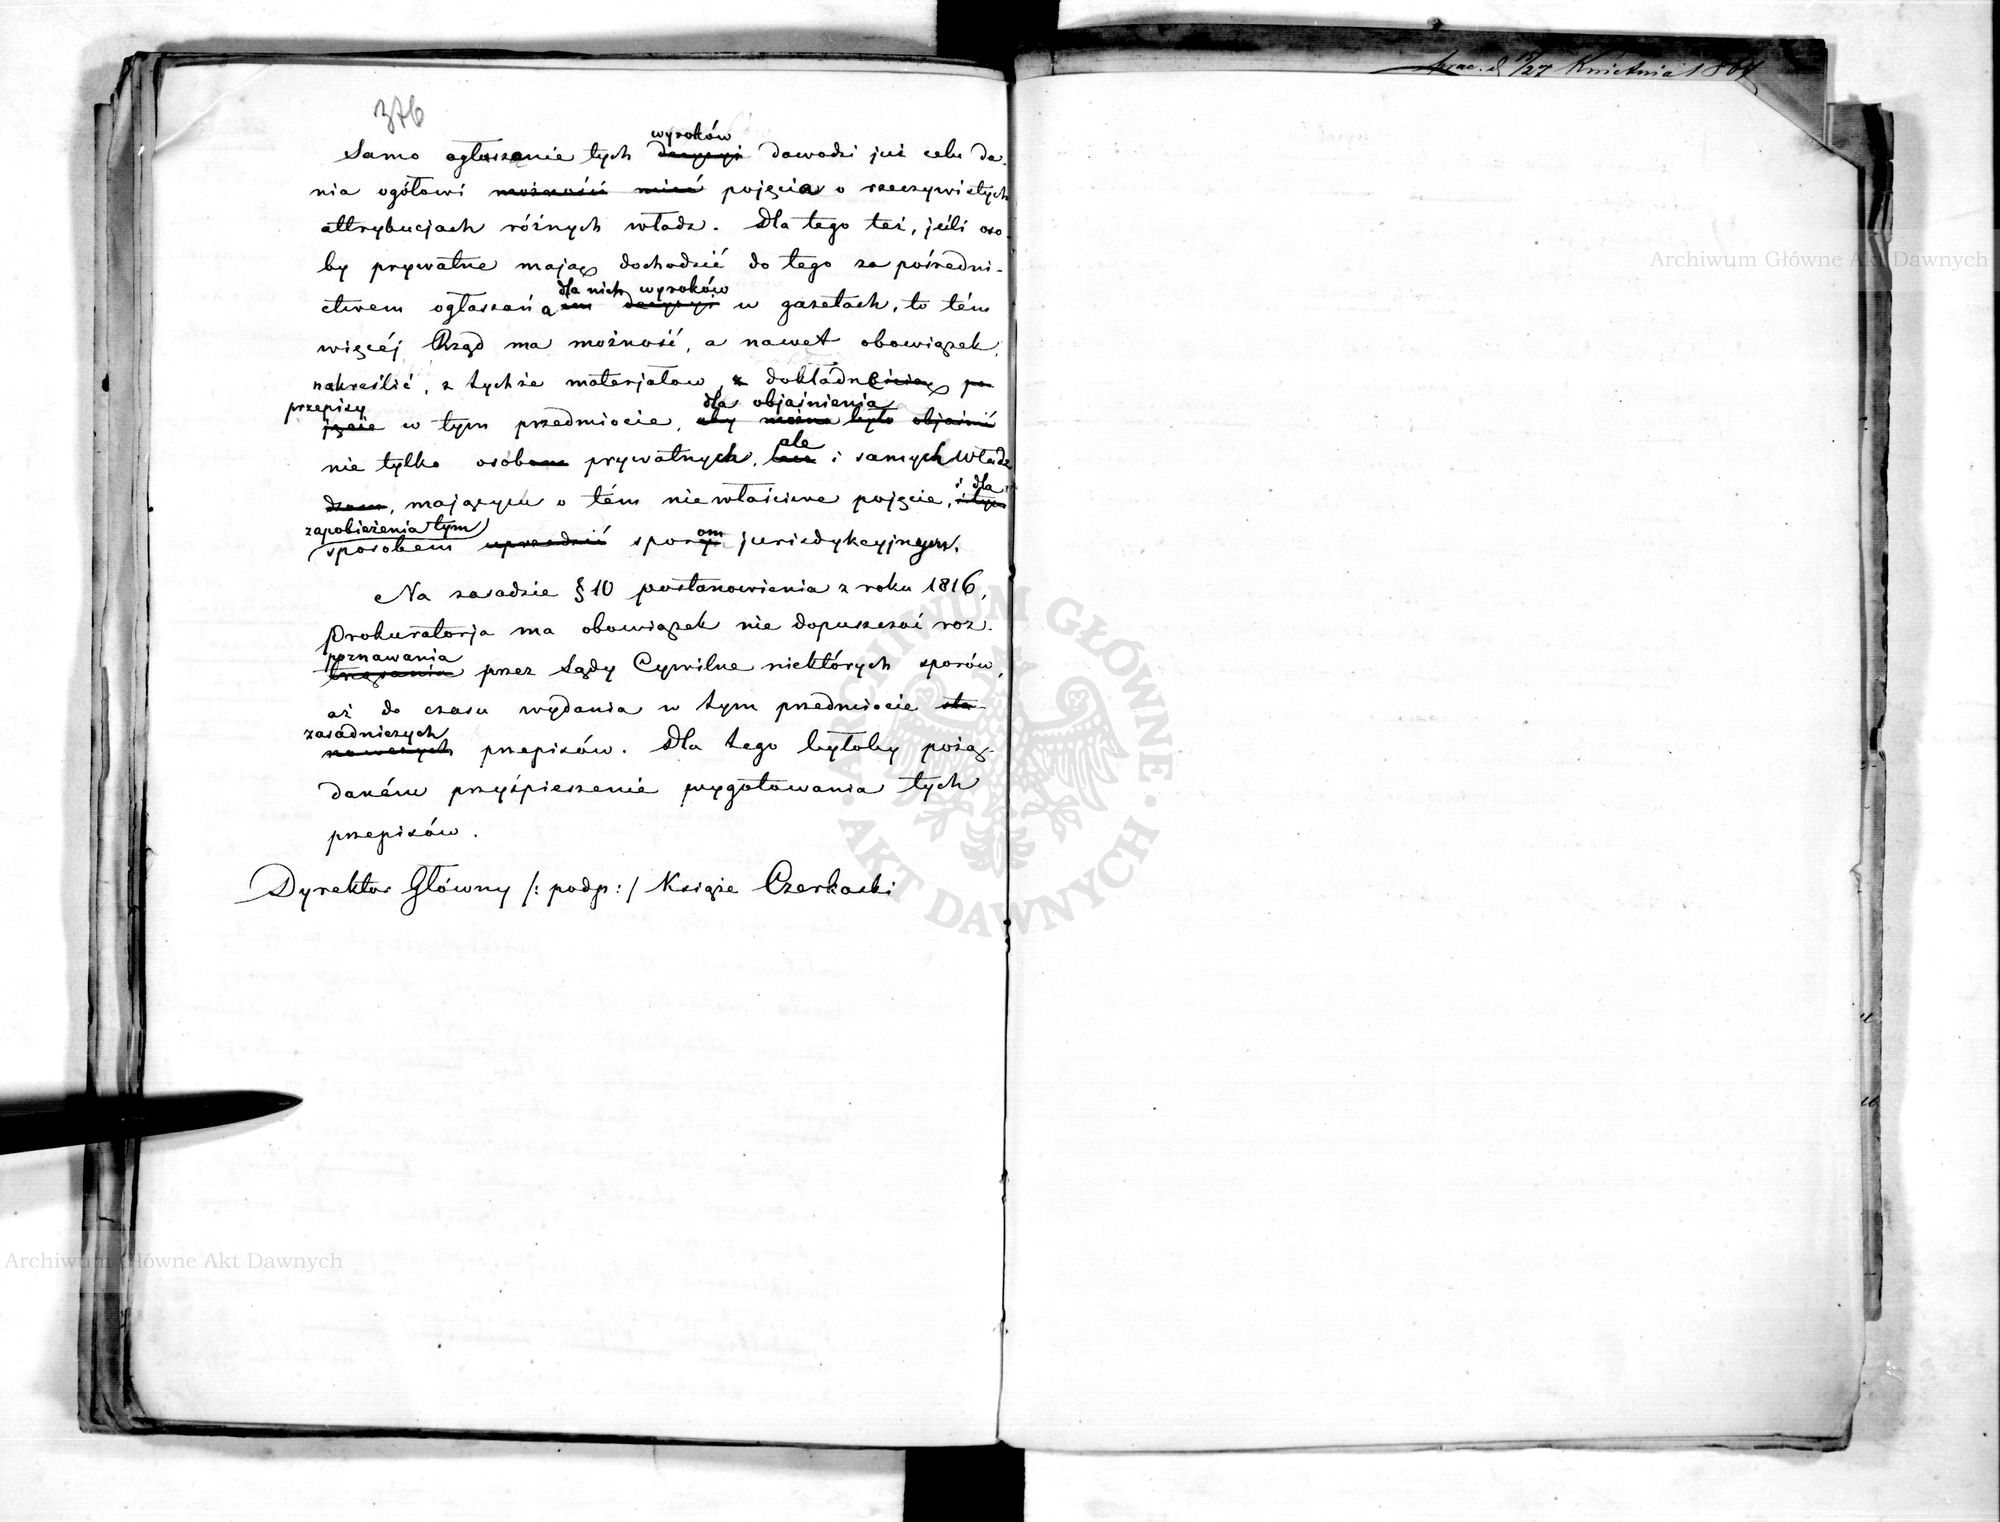 376
Samo ogłoszenie tych decyzji wyroków dowodzi już celu da-
nia ogółowi możność mieć pojęcia o rzeczywistych
attrybucjach różnych władz. Dla tego też, jeśli oso-
by prywatne mają dochodzić do tego za pośredni-
ctwem ogłaszania im dla nich decyzji wyroków w gazetach, to tém
więcéj Rząd ma możność, a nawet obowiązek,
nakreślić, z tychże materjałow, z dokładne po
jęcie przepisy w tym przedmiocie, aby można było objaśnić dla objaśnienia
nie tylko osobom prywatnych, lecz ale i samych Władz
dzom, mającym o tém niewłaściwe pojęcie, i tym i dla
zapobieżenia tym
sposobem uprzedzić sporom jurisdykcyjnym.
Na zasadzie § 10 postanowienia z roku 1816,
Prokuratorja ma obowiązek nie dopuszczać roz-
trząsania poznawania przez Sądy Cywilne niektórych sporów,
aż do czasu wydania w tym przedmiocie sta-
nowczych zasadniczych przepisów. Dla tego byłoby pożą-
daném przyśpieszenie przygotowania tych
przepisów.
Dyrektor Główny /: podp: / Książe Czerkaski
15/27 Kwietnia 1867
Archiwum Główne Akt Dawnych
ARCHIWUM GŁÓWNE
AKT DAWNYCH
Archiwum Główne Akt Dawnych